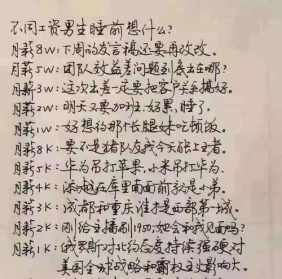 不同工资男生睡前想什么?
月薪8W:下周的发言稿还要再改改。
月薪5W:团队效益差问题到底出在哪?
月薪3W:这次出差一定要把客户关系搞好。
月薪2W:明天又要加班,好累,睡了。
月薪1W:好想约那个长腿妹吃顿饭。
月薪8K:要不是猪队友我今天能上王者。
月薪5K:华为吊打苹果,小米吊打华为。
月薪4K:梁超在库里面前就是小弟。
月薪3K:成都和重庆谁才是西部第一城。
月薪2K:刚给主播刷了50,她会和我见面吗?
月薪1K:俄罗斯对北约态度持续强硬对
美国全球战略和霸权主义影响大。